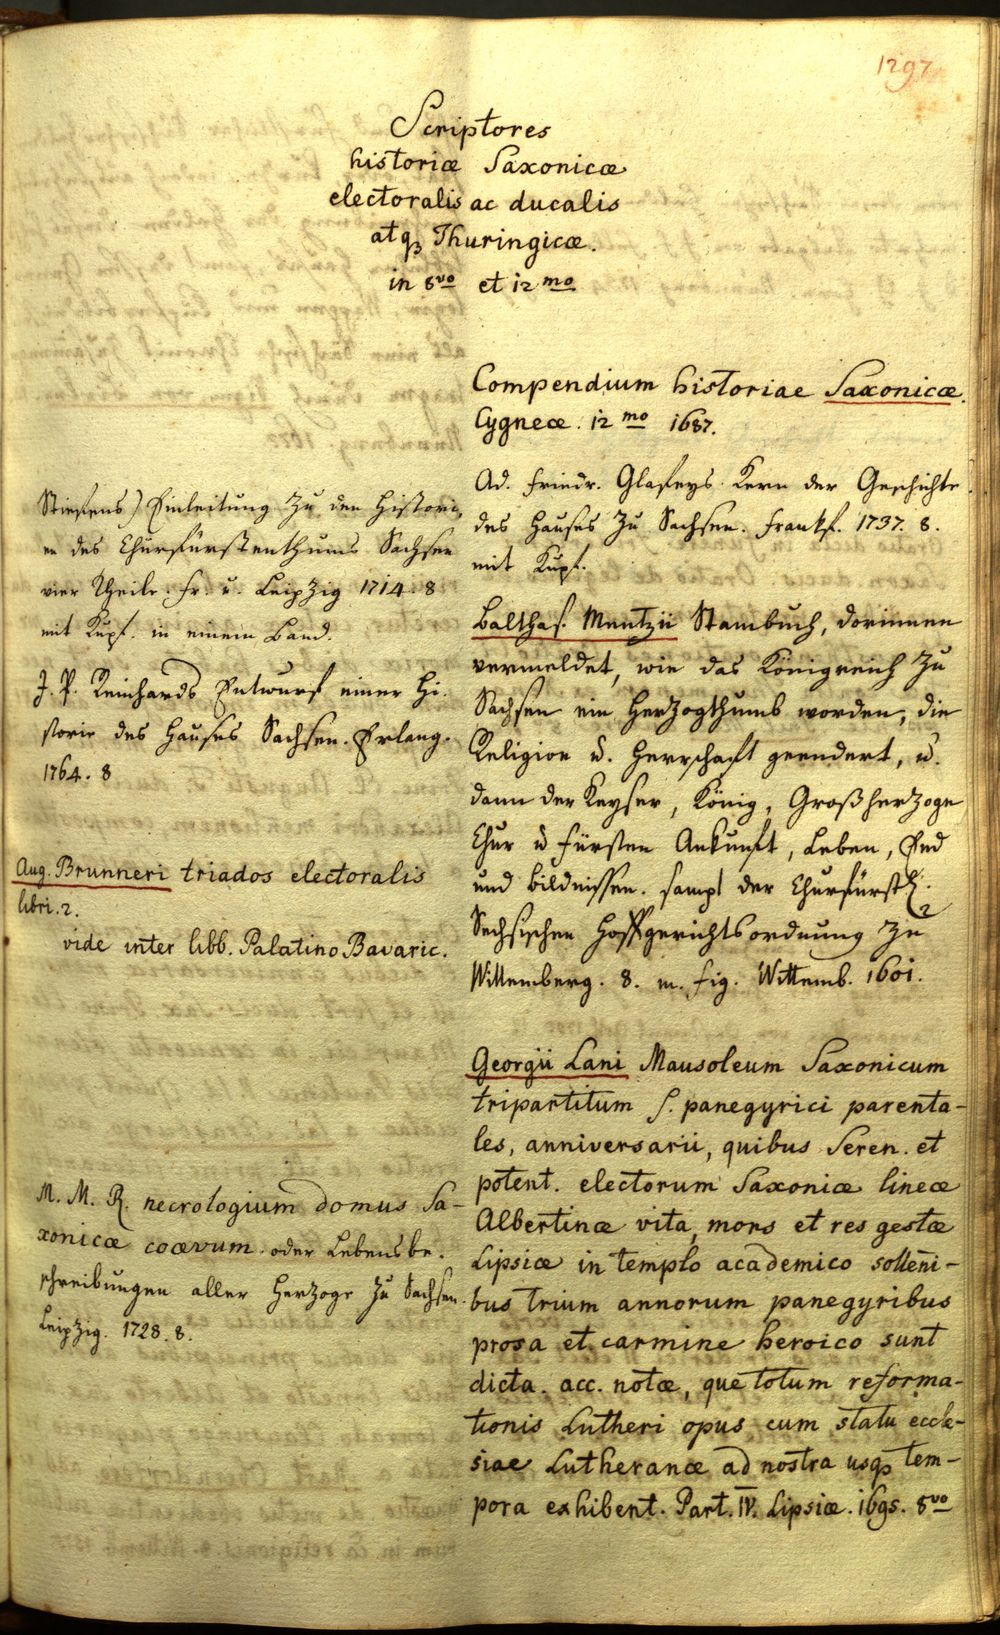 1297
Scriptores
historiæ Saxonicæ
electoralis ac ducalis
atqꝫ Thuringicæ.
in 8vo et 12mo
Stiefens) Einleitung zu den Histori-
en des Churfürstenthums Sachsen
vier Theile. Fr. u. Leipzig 1714. 8
mit Kupf. in einem Band.
J. P. Reinhards Entwurf einer Hi-
storie des Hauses Sachsen. Erlang.
1764. 8
Aug. Brunneri triados electoralis
libri. 2.
vide inter libb. Palatino Bavaric.
M. M. R. necrologium domus Sa-
xonicæ coævum. oder Lebensbe-
schreibungen aller Herzoge zu Sachsen.
Leipzig. 1728. 8.
Compendium historiae Saxonicæ.
Cygneæ. 12mo 1687.
Ad. Friedr. Glafeys Kern der Geschichte
des Hauses zu Sachsen. Frankf. 1737. 8.
mit Kupf.
Balthas. Mentzii Stambuch, dorinnen
vermeldet, wie das Königreich zu
Sachsen ein Herzogthumb worden, die
Religion u. Herrschaft geendert, u.
dann der Keyser, König, Großherzoge
Chur u Fürsten Ankunft, Leben, End
und Bildnissen. sampt der Churfürstl.
Sechsischen Hoffgerichtsordnung zu
Wittemberg. 8. m. fig. Wittemb. 1601.
Georgii Lani Mausoleum Saxonicum
tripartitum s. panegyrici parenta-
les, anniversarii, quibus Seren. et
potent. electorum Saxoniæ lineæ
Albertinæ vita, mors et res gestæ
Lipsiæ in templo academico solleni-
bus trium annorum panegyribus
prosa et carmine heroico sunt
dicta. acc. notæ, que totum reforma-
tionis Lutheri opus cum statu eccle-
siae Lutheranæ ad nostra usqꝫ tem-
pora exhibent. Part. IV. Lipsiæ. 1695. 8vo